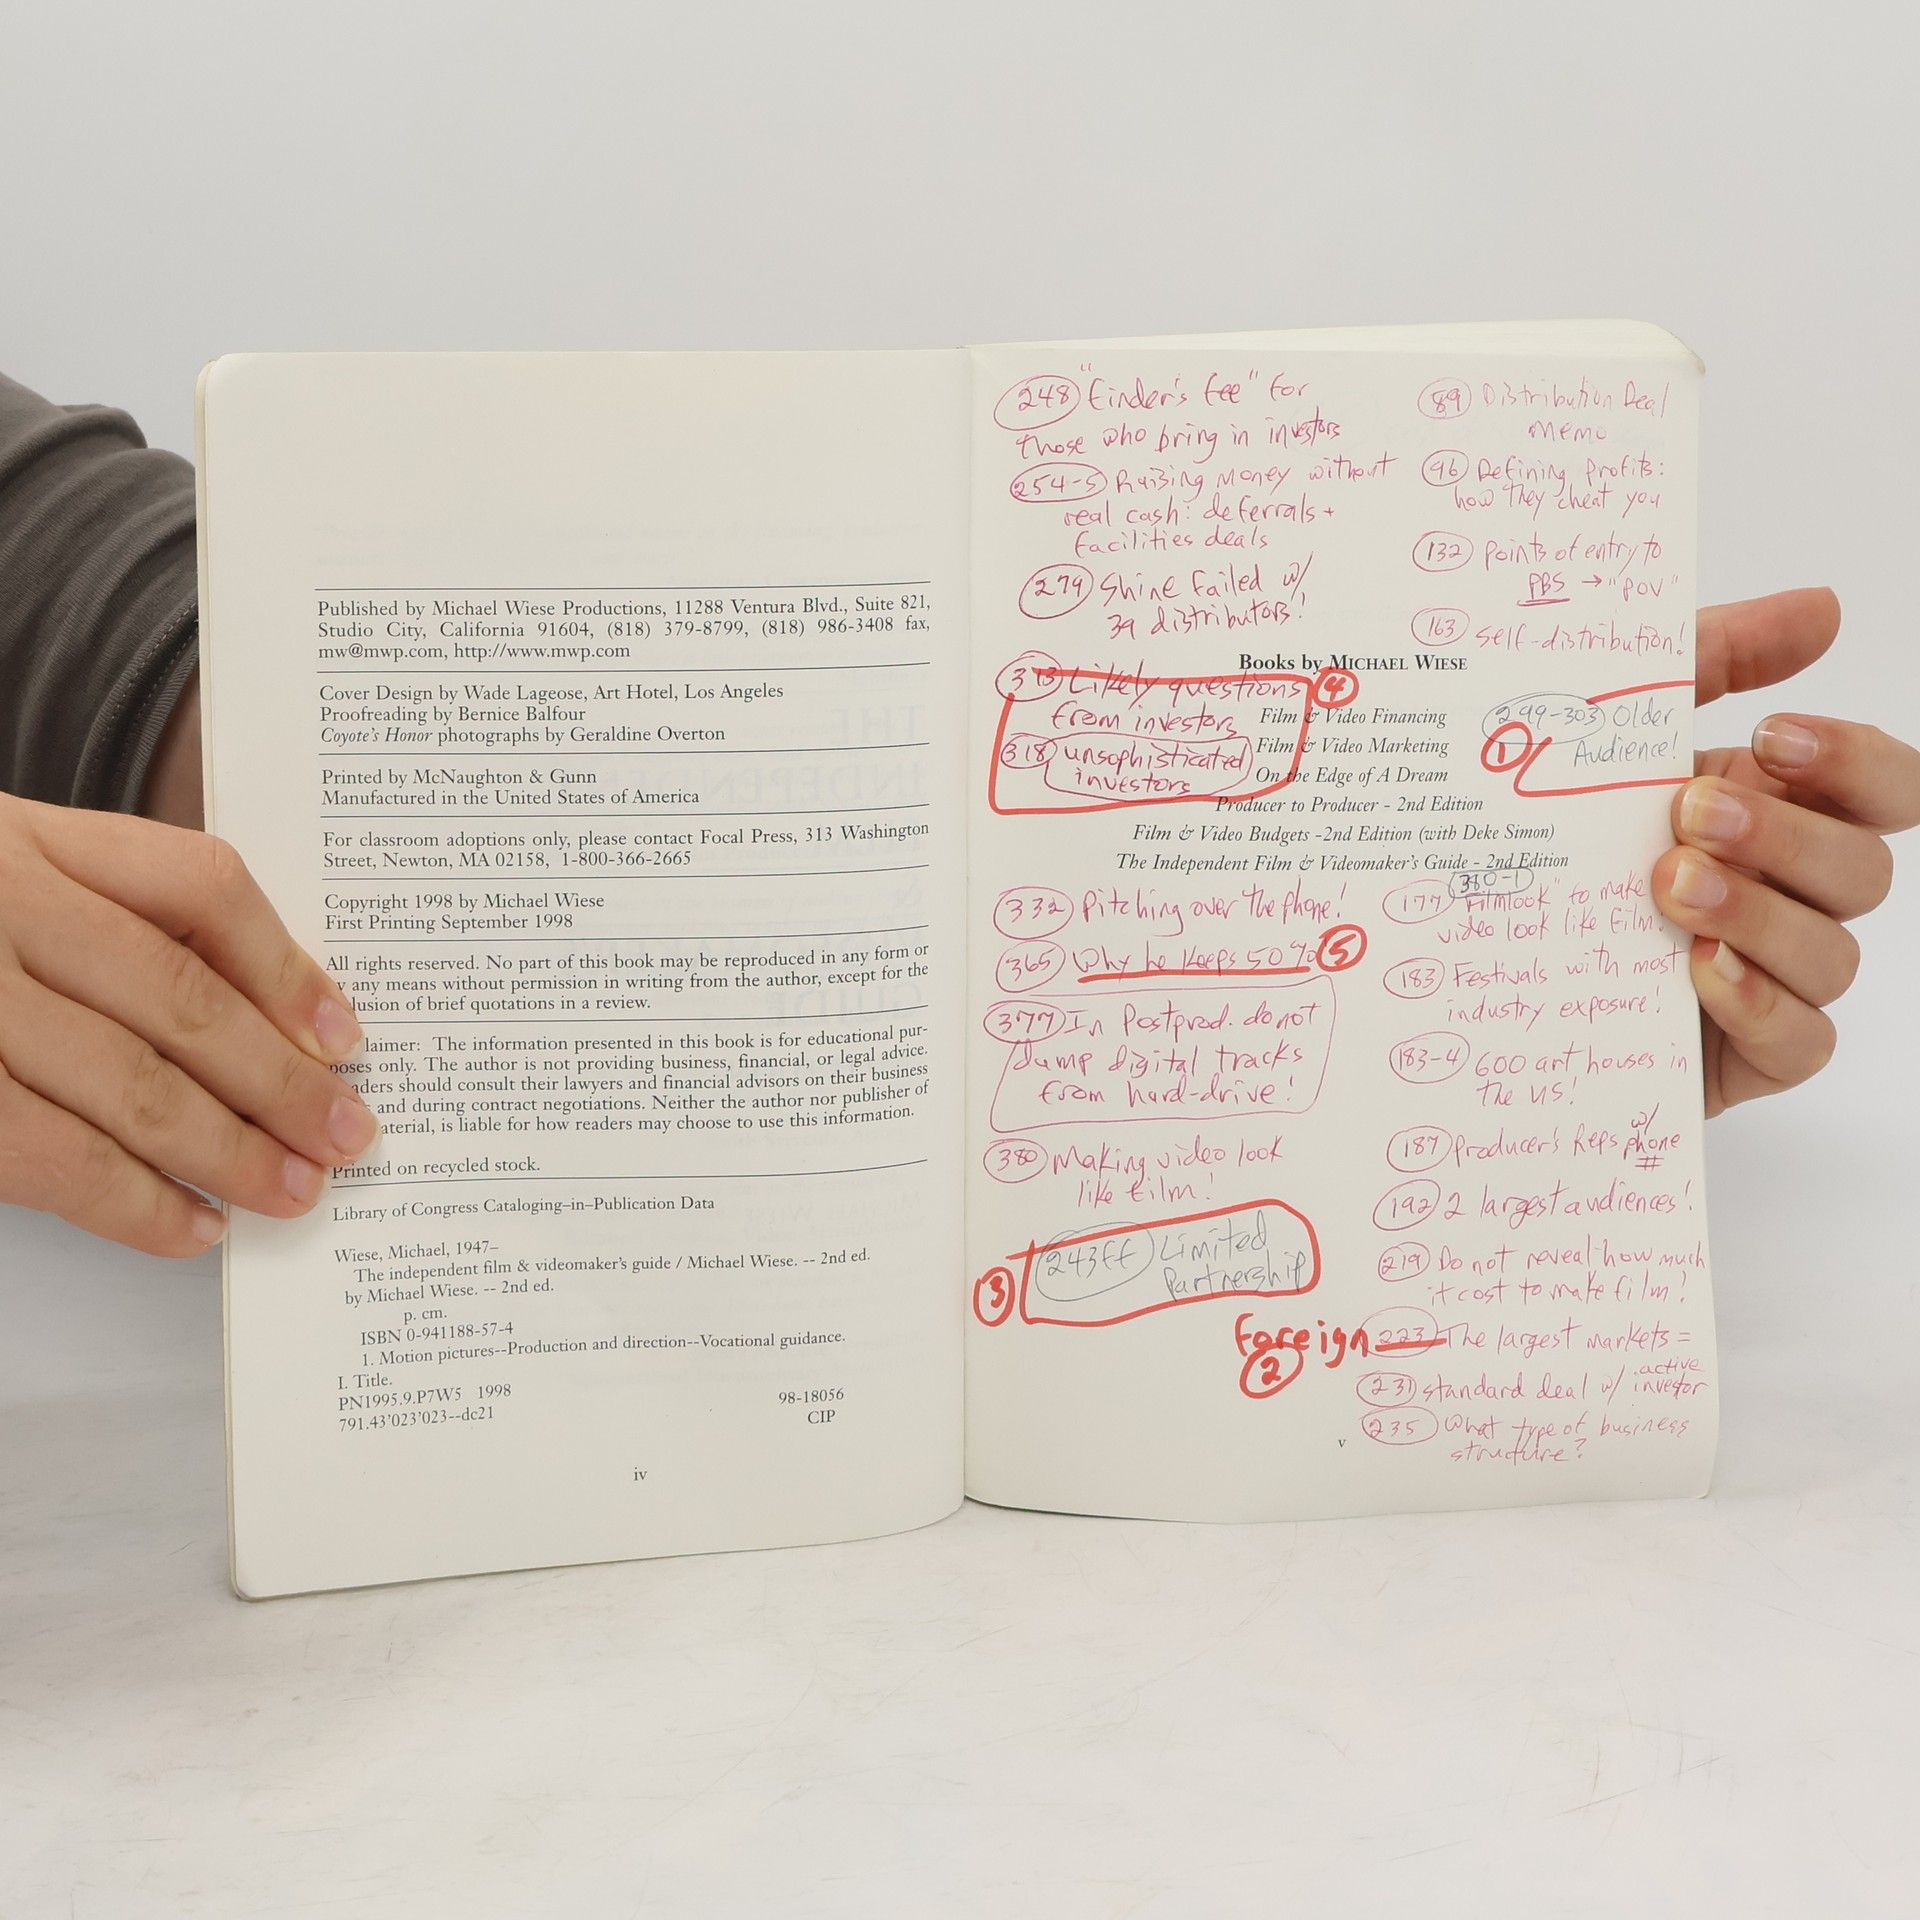 Published by Michael Wiese Productions, 11288 Ventura Blvd., Suite 821,
Studio City, California 91604, (818) 379-8799, (818) 986-3408 fax,
mw@mwp.com, http://www.mwp.com
Cover Design by Wade Lageose, Art Hotel, Los Angeles
Proofreading by Bernice Balfour
Coyote's Honor photographs by Geraldine Overton
Printed by McNaughton & Gunn
Manufactured in the United States of America
For classroom adoptions only, please contact Focal Press, 313 Washington
Street, Newton, MA 02158, 1-800-366-2665
Copyright 1998 by Michael Wiese
First Printing September 1998
All rights reserved. No part of this book may be reproduced in any form or
y any means without permission in writing from the author, except for the
lusion of brief quotations in a review.
laimer: The information presented in this book is for educational pur-
poses only. The author is not providing business, financial, or legal advice.
aders should consult their lawyers and financial advisors on their business
and during contract negotiations. Neither the author nor publisher of
aterial, is liable for how readers may choose to use this information.
Printed on recycled stock.
Library of Congress Cataloging–in–Publication Data
Wiese, Michael, 1947–
The independent film & videomaker's guide / Michael Wiese. -- 2nd ed.
by Michael Wiese. -- 2nd ed.
p. cm.
ISBN 0-941188-57-4
1. Motion pictures--Production and direction--Vocational guidance.
I. Title.
PN1995.9.P7W5 1998
98-18056
791.43'023'023--dc21
CIP
iv
248 "Finder's fee" for
those who bring in investors
254-5 Raising money without
real cash: deferrals +
facilities deals
279 Shine failed w/
39 distributors!
313 Likely questions 4
from investors
318 unsophisticated
investors
89 Distribution Deal
memo
96 Defining profits:
how they cheat you
132 points of entry to
PBS → "POV"
163 self-distribution!
Books by MICHAEL WIESE
Film & Video Financing
Film & Video Marketing
On the Edge of A Dream
Producer to Producer - 2nd Edition
Film & Video Budgets -2nd Edition (with Deke Simon)
The Independent Film & Videomaker's Guide - 2nd Edition
299-303 Older
1 Audience!
332 Pitching over the phone!
365 Why he keeps 50% 5
377 In Postprod. do not
dump digital tracks
from hard-drive!
380 Making video look
like film!
3 243ff Limited
Partnership
380-1
177 "Filmlook" to make
video look like film!
183 Festivals with most
industry exposure!
183-4 600 art houses in
the US!
187 producer's reps w/ phone
#
192 2 largest audiences!
219 Do not reveal how much
it cost to make film!
Foreign 223 The largest markets =
2
231 standard deal w/ active investor
235 What type of business
structure?
v